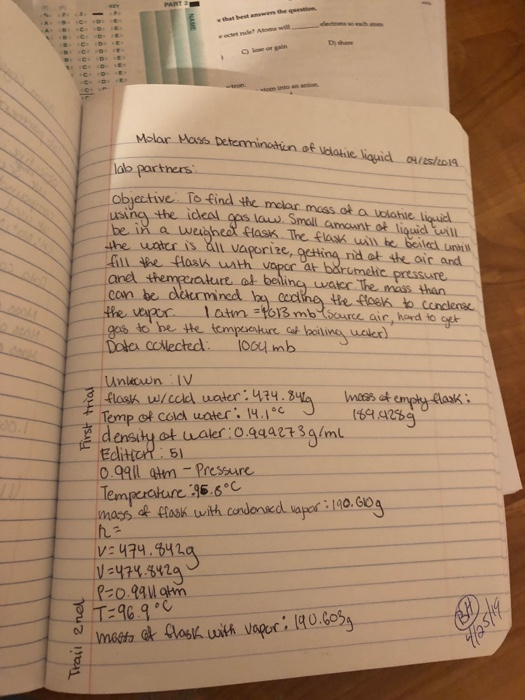 KEY
PART 2
NAME
e that best answers the question.
octet rule? Atoms will ______ electrons so each atom
C) lose or gain
D) share
Molar Mass Determination of Volatile liquid 04/25/2019
lab partners:
Objective: To find the molar mass of a volatile liquid
using the ideal gas law. Small amount of liquid will
be in a weighed flask. The flask will be boiled untill
the water is all vaporize, getting rid of the air and
fill the flask with vapor at barometic pressure
and themperature of boiling water. The mass than
can be determined by cooling the flask to condense
the vapor. 1 atm = 1013 mb (source air, hard to get
gas to be the temperature of boiling water)
Data collected: 1004 mb
Unknown: IV
flask w/cold water: 474.842g
mass of empty flask:
189.428g
Temp of cold water: 14.1°C
density of water: 0.999273 g/ml
Edition: 51
0.9911 atm - Pressure
Temperature: 96.8°C
mass of flask with condensed vapor: 190.610g
n=
V= 474.842g
V= 474.842g
P= 0.9911 atm
T= 96.9°C
mass of flask with vapor: 190.603g
First trial
Trail 2nd
BH
4/25/19